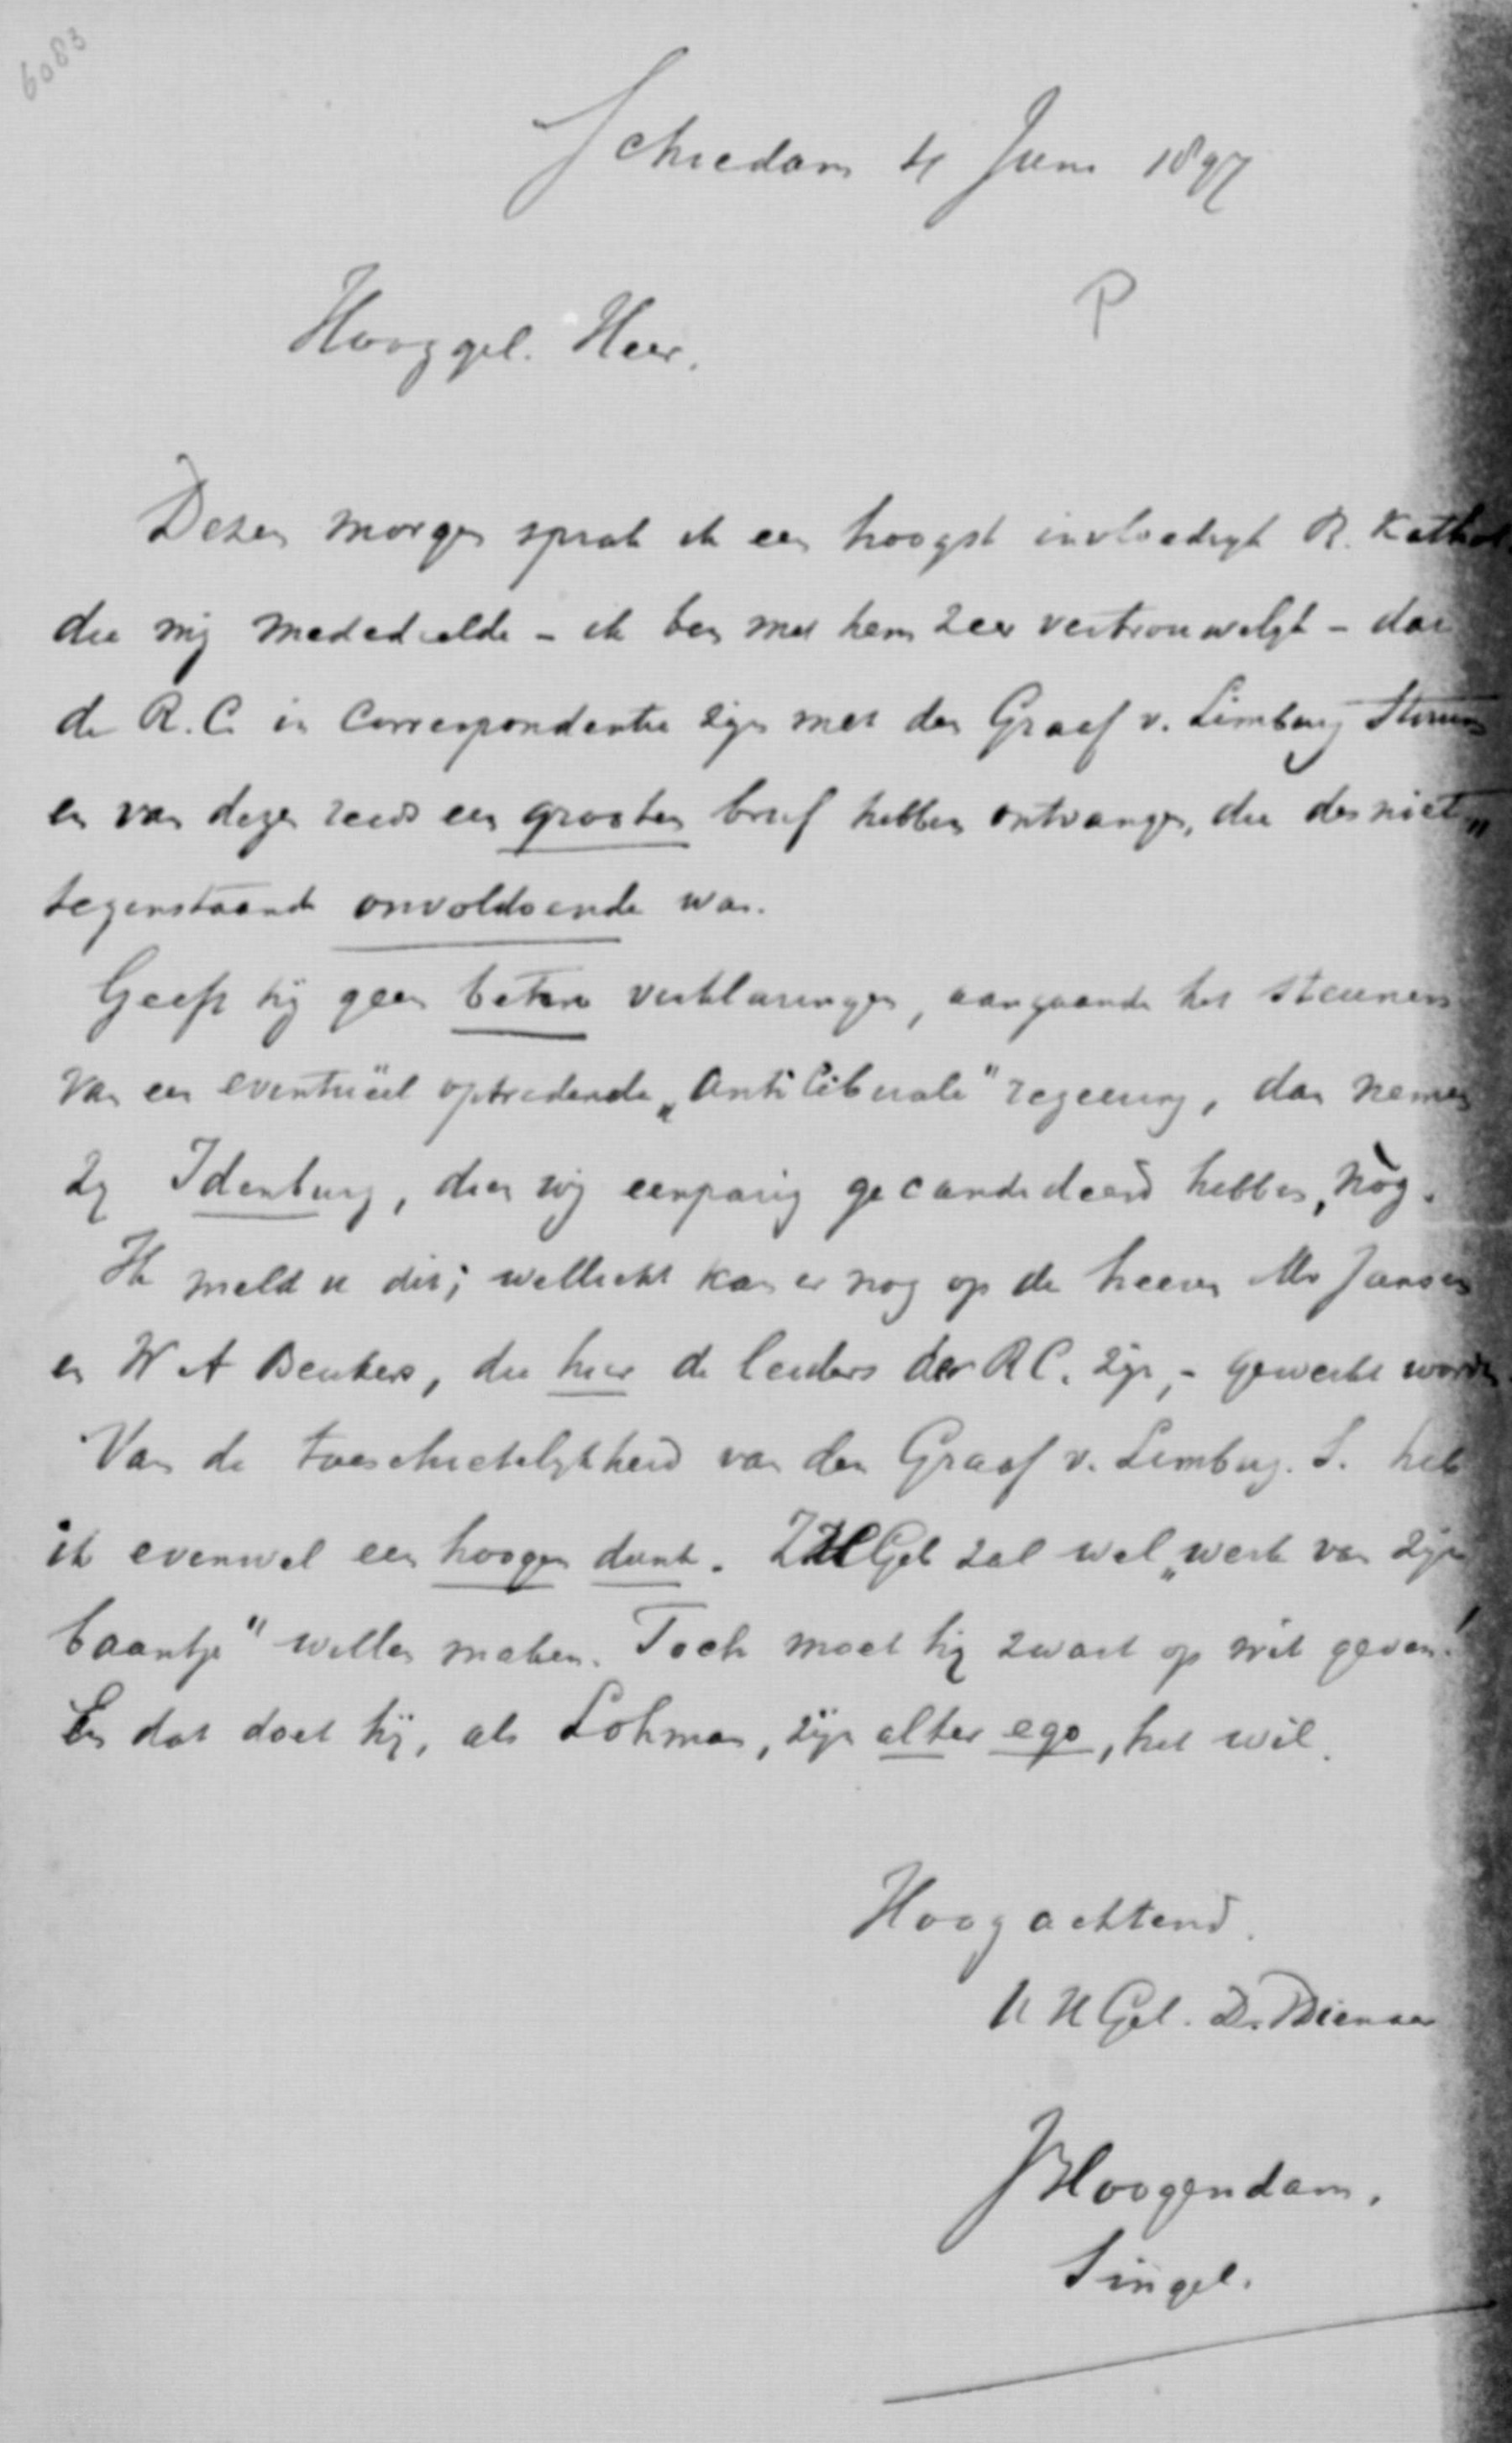 6083
Schiedam 4 Juni 1897
P
Hooggel. Heer.
Dezen morgen sprak ik een hoogst invloedrijk R. Kathol.
die mij mededeelde - ik ben met hem zeer vertrouwelijk - dat
de R.C. in correspondentie zijn met den Graaf v. Limburg Stirum
en van dezen reeds een grooten brief hebben ontvangen, die des niet„
tegenstaande onvoldoende was.
Geeft hij geen betere verklaringen, aangaande het steunen
van een eventuëel optredende „antiliberale" regeering, dan nemen
zij Idenburg, dien wij eenparig gecandideerd hebben, nòg.
Ik meld u dit; wellicht kan er nog op de heeren Mr Jansen
en W A Beukers, die hier de leiders der RC. zijn, - gewerkt worden.
Van de toeschietelijkheid van den Graaf v. Limburg. S. heb
ik evenwel een hoogen dunk. ZHGeb zal wel „werk van zijn
baantje" willen maken. Toch moet hij zwart op wit geven!
En dat doet hij, als Lohman, zijn alter ego, het wil.
Hoogachtend.
U HGel. D. Dienaar
J Hoogendam.
Singel.